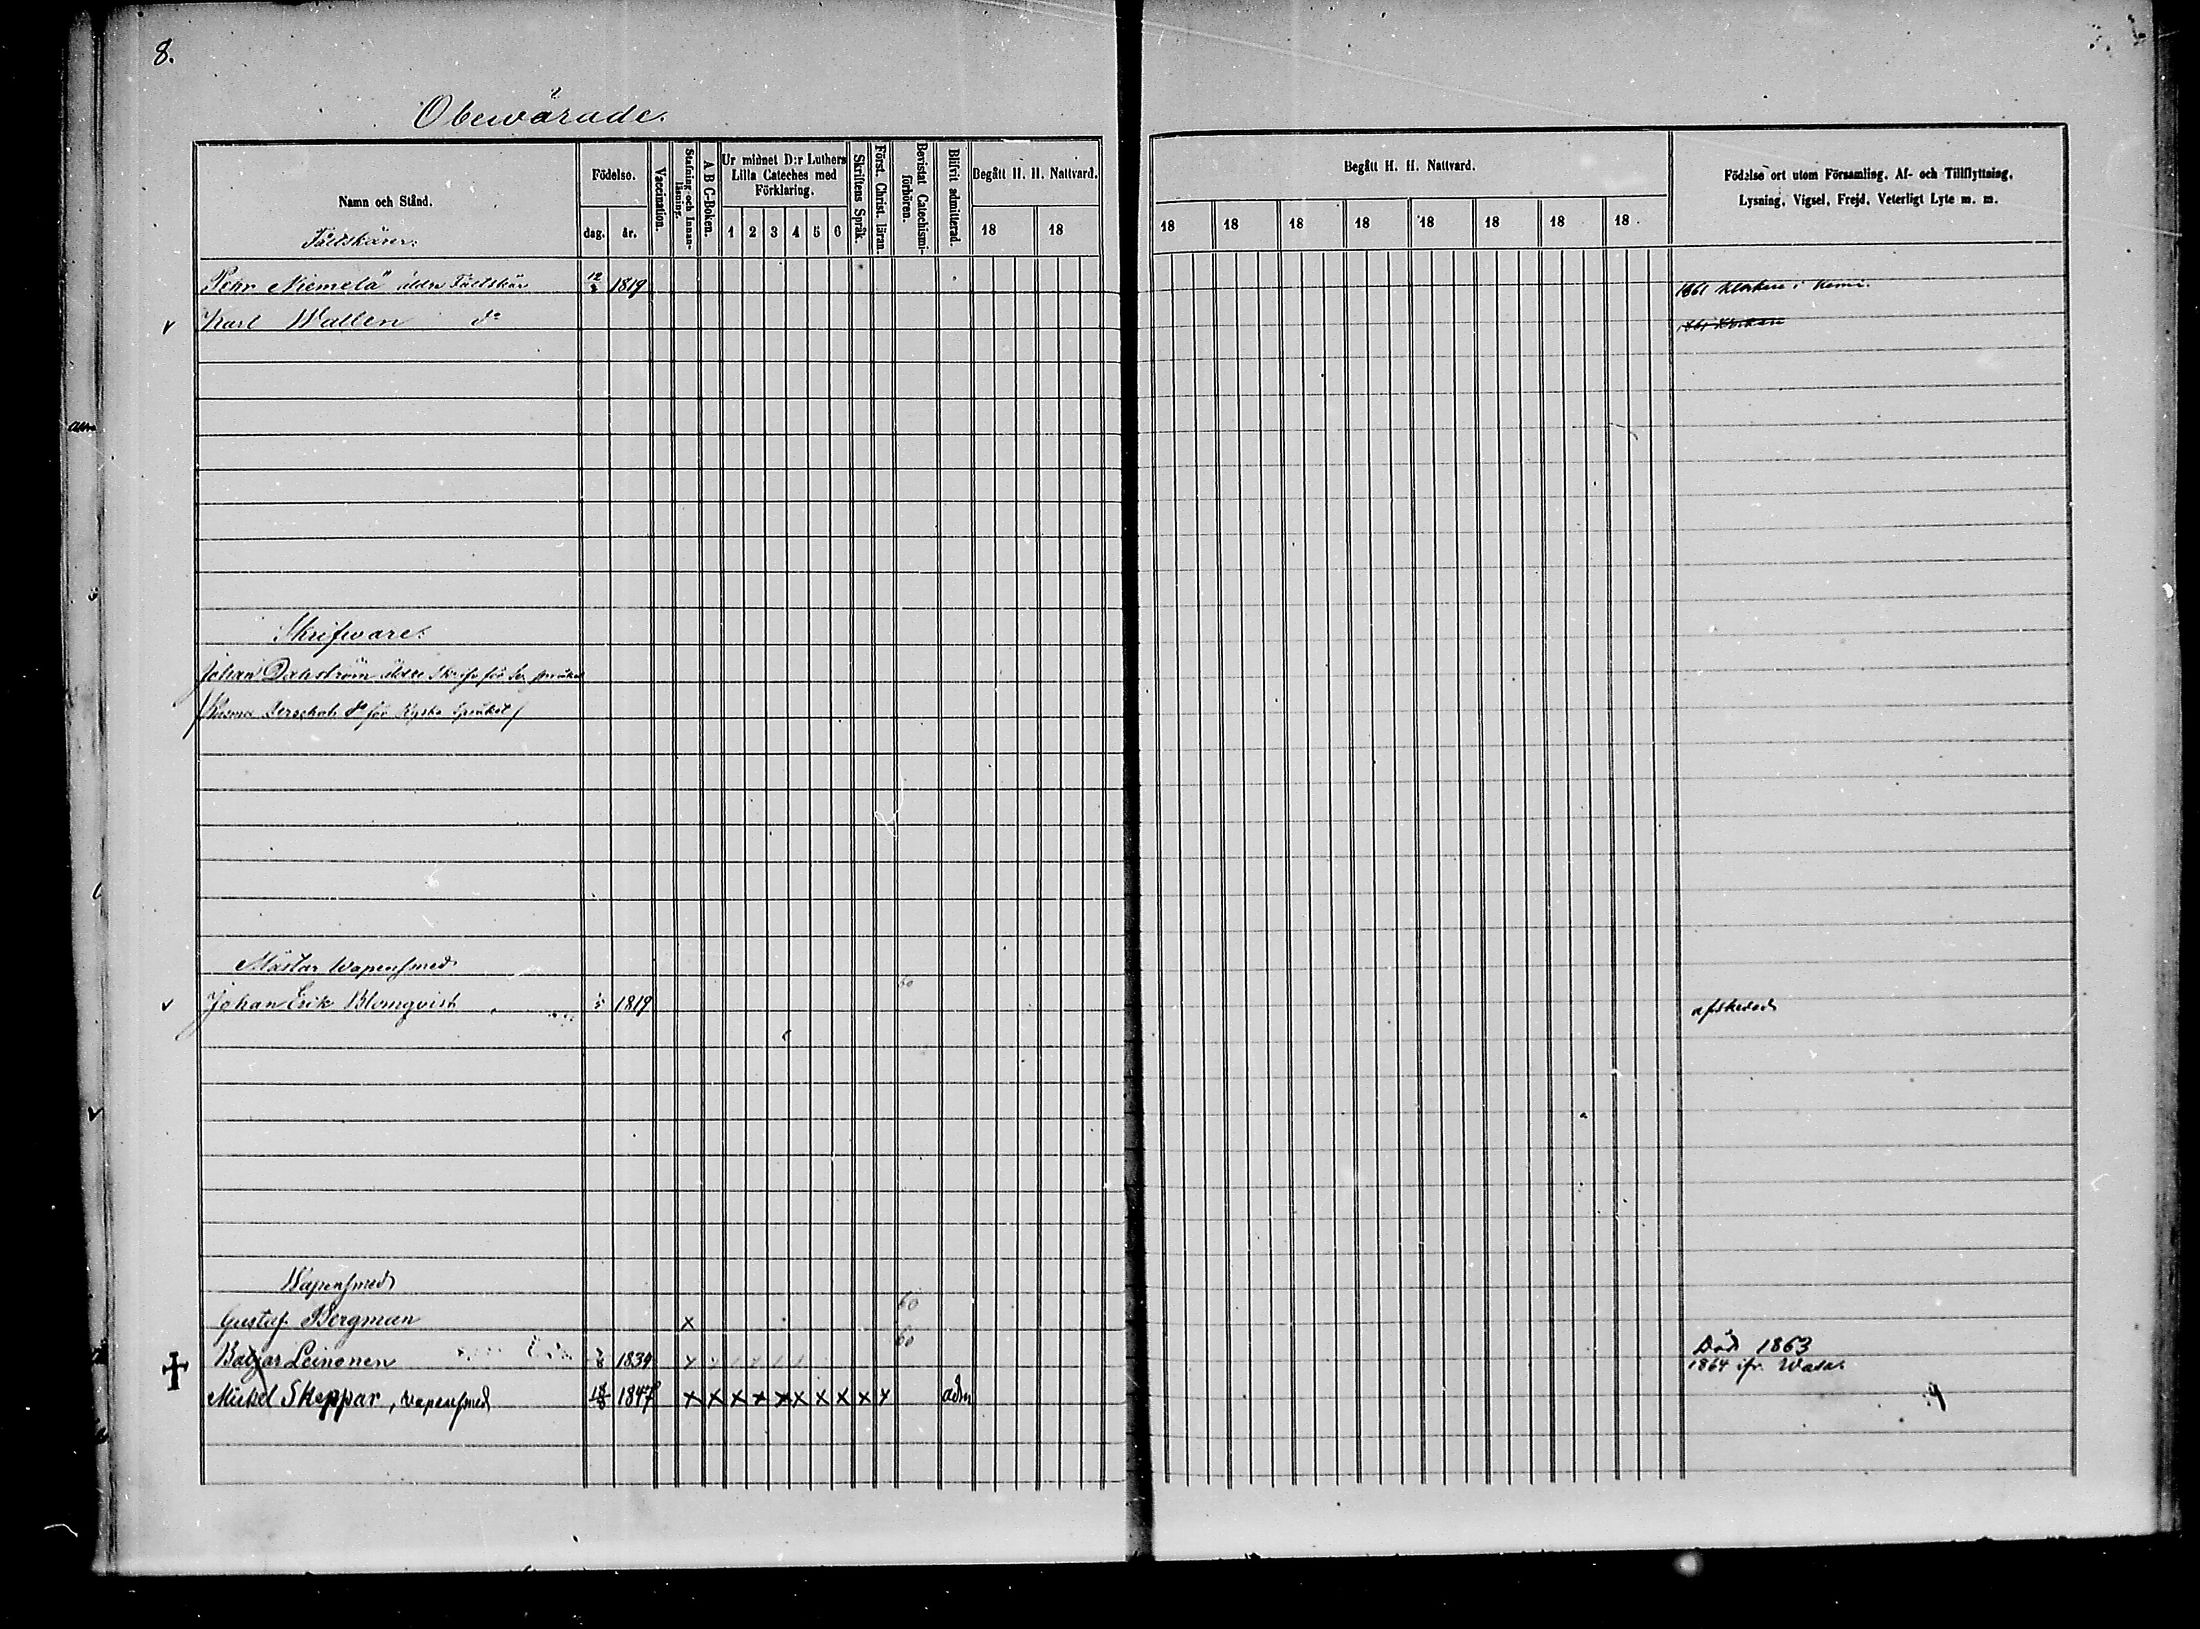 8.
Obewärade.
Namn och Stånd.
Födelse.
dag.
år.
Vaccination.
Stafning och Innanläsning.
A B C-Boken.
Ur minnet D:r Luthers
Lilla Cateches med
Förklaring.
1 2 3 4 5 6
Skriftens Språk.
Först. Christ. läran.
Bevistat Catechismiförhören.
Blifvit admitterad.
Begått H. H. Nattvard.
18 18
Begått H. H. Nattvard.
18 18 18 18 18 18 18 18
Födelse ort utom Församling, Af- och Tillflyttning,
Lysning, Vigsel, Frejd, Veterligt Lyte m. m.
Fältskärer.
Pehr Niemelä äldre Fältskär 12 1819 1861 klockare i Kemi.
v Karl Wallen do 1861 klockare
Skrifware.
Johan Dahström äldre Skrifv för Sv språket
do för Ryska Språket
Mästar Wapensmed
v Johan Erik Blomqvist 1819 60 afskedad
Wapensmed
Gustaf Bergman x 60
Balzar Leinonen 1839 60 Död 1863
1864 ifr. Wasa
Mickel Skeppar, Vapensmed 1847 x x x x x x x x x x adm